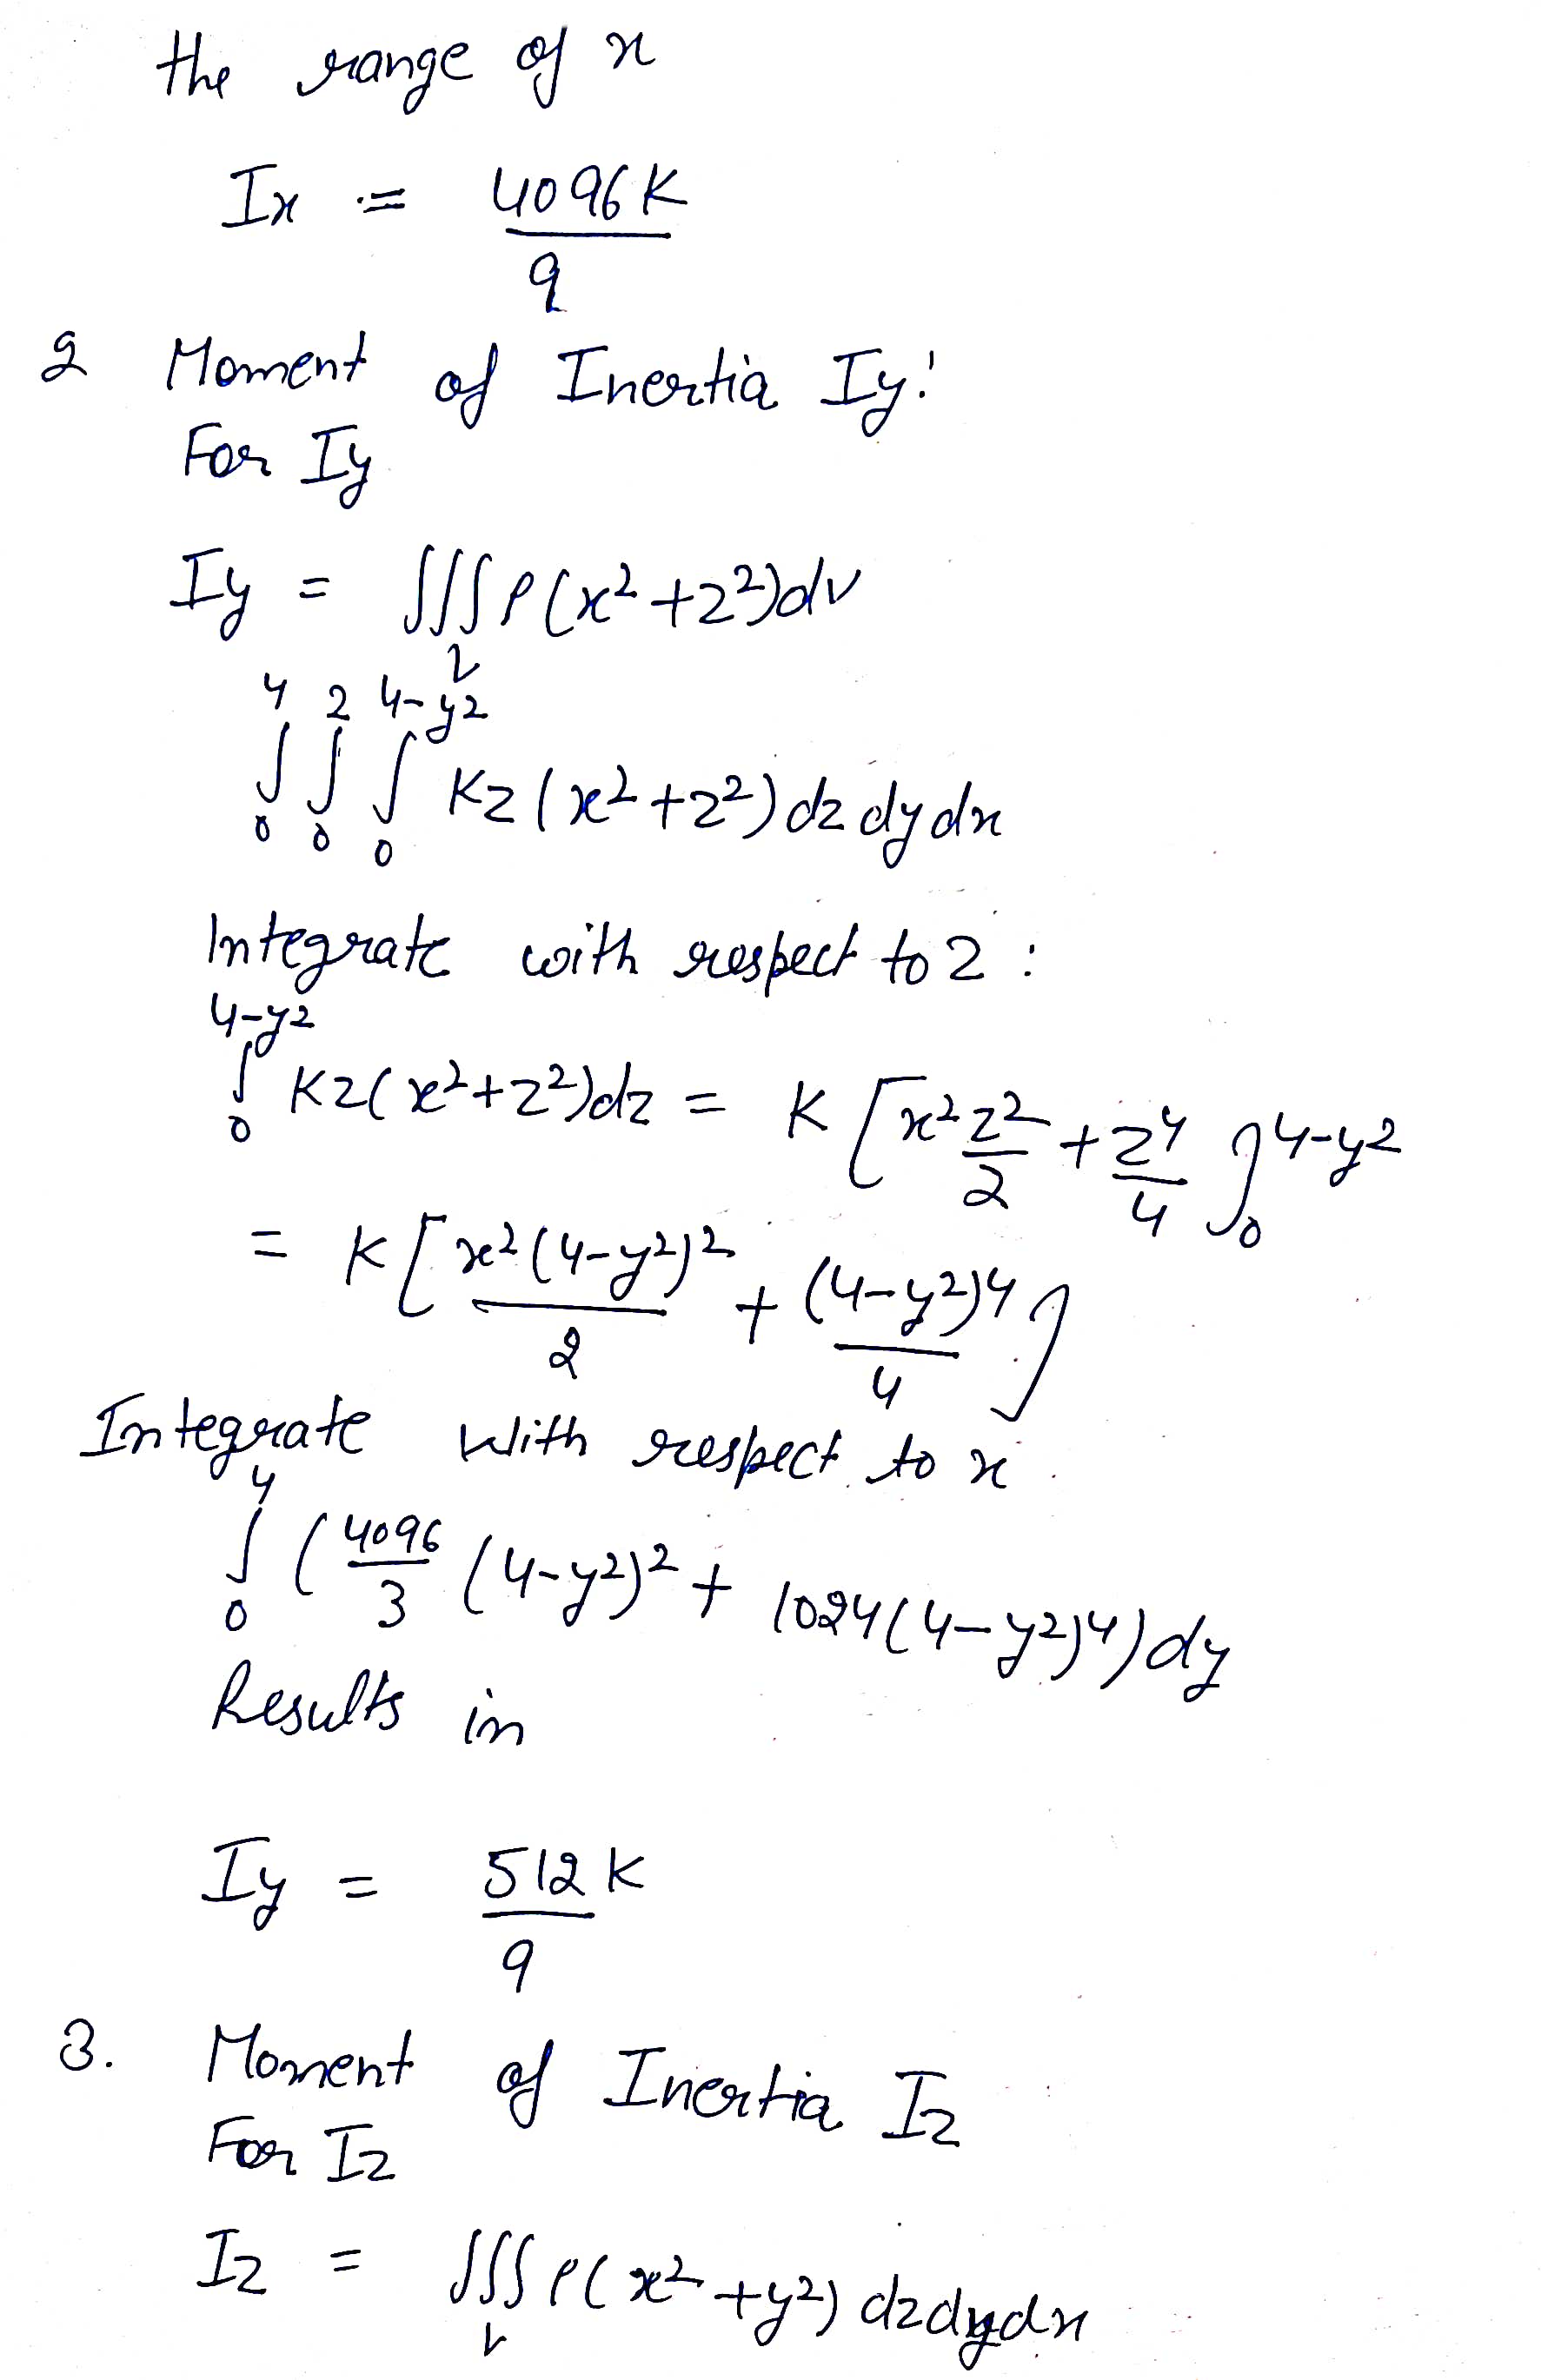 the range of x
Ix = 4096K/9
2 Moment of Inertia Iy:
For Iy
Iy = ∭_V ρ(x²+z²)dv
∫₀⁴ ∫₀² ∫₀^(4-y²) Kz(x²+z²)dz dy dx
Integrate with respect to z :
∫₀^(4-y²) Kz(x²+z²)dz = K[x² z²/2 + z⁴/4]₀^(4-y²)
= K[x²(4-y²)²/2 + (4-y²)⁴/4]
Integrate with respect to x
∫₀⁴ (4096/3 (4-y²)² + 1024(4-y²)⁴)dy
Results in
Iy = 512K/9
3. Moment of Inertia Iz
For Iz
Iz = ∭_V ρ(x²+y²) dzdydx